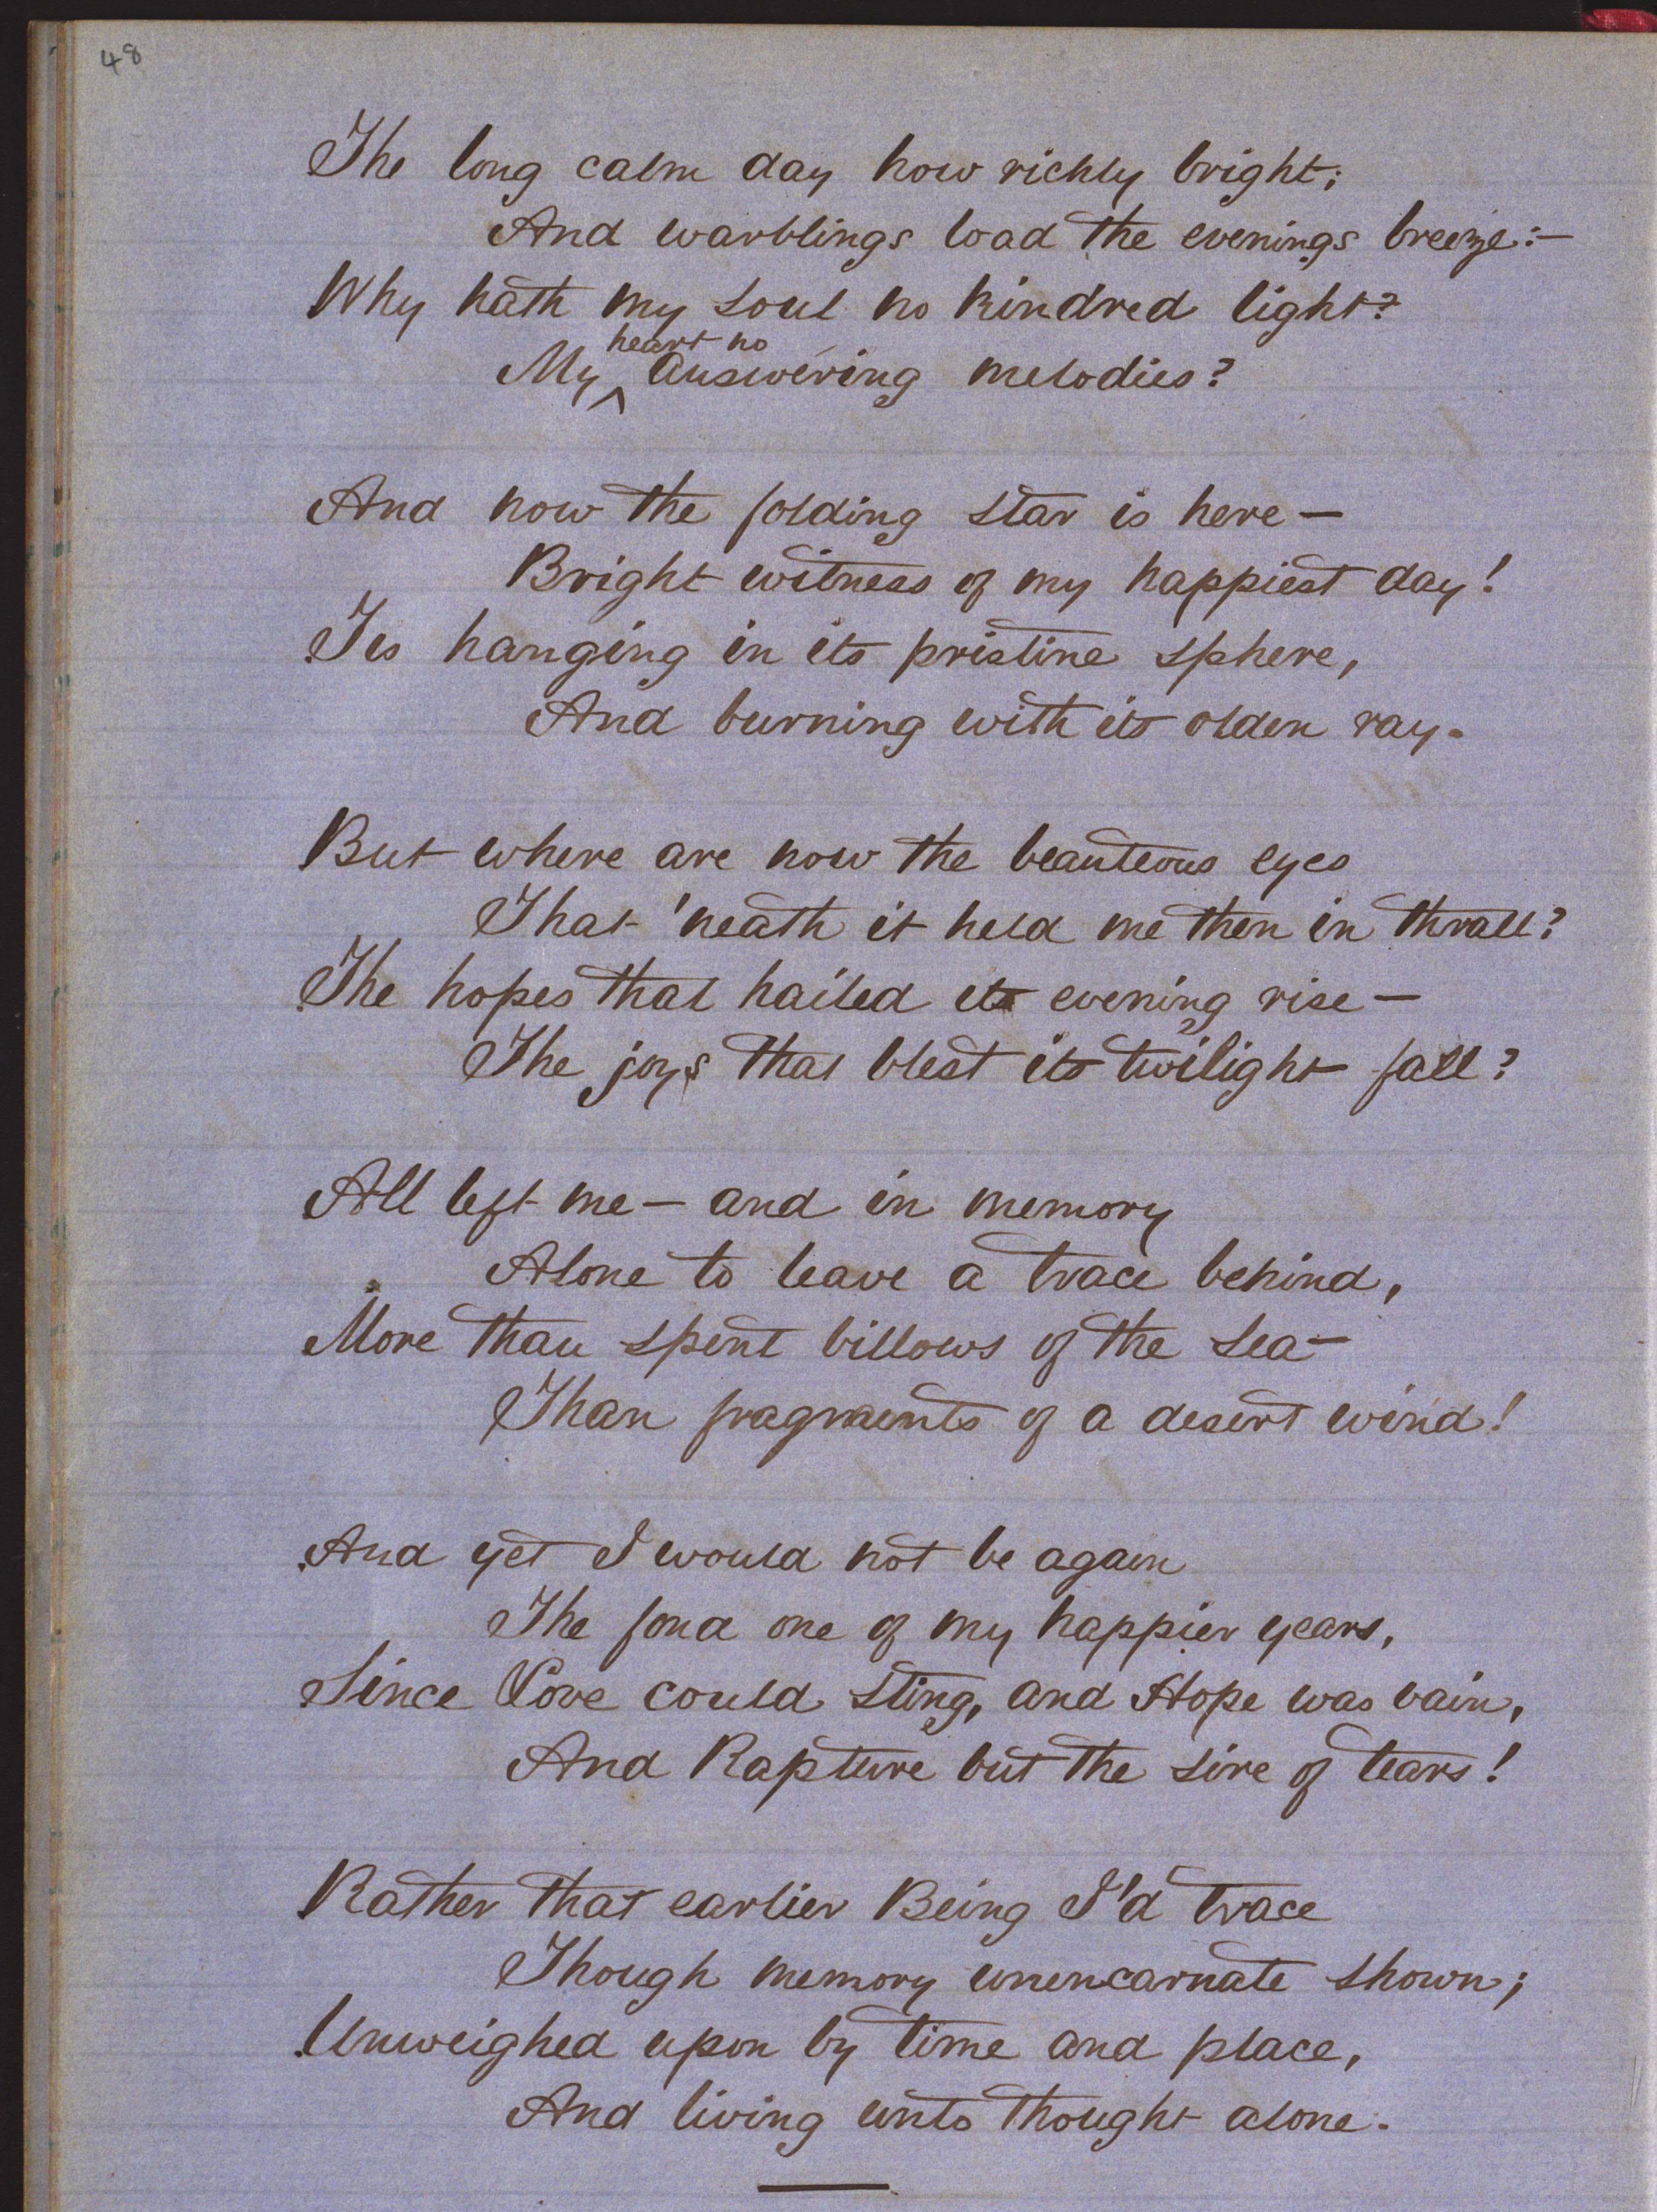 48
The long calm day how richly bright;
And warblings load the evenings breeze:—
Why hath my soul no kindred light?
heart no
My ^ answering melodies?
And now the folding star is here—
Bright witness of my happiest day!
Tis hanging in its pristine sphere,
And burning with its olden ray.
But where are now the beauteous eyes
That 'neath it held me then in thrall?
The hopes that hailed its evening rise—
The joys that blest its twilight fall?
All left me— and in memory
Alone to leave a trace behind,
More than spent billows of the sea—
Than fragments of a desert wind!
And yet I would not be again
The fond one of my happier years,
Since Love could sting, and Hope was vain,
And Rapture but the sire of tears!
Rather that earlier Being I'd trace
Though memory unencarnate shown;
Unweighed upon by time and place,
And living unto thought alone.